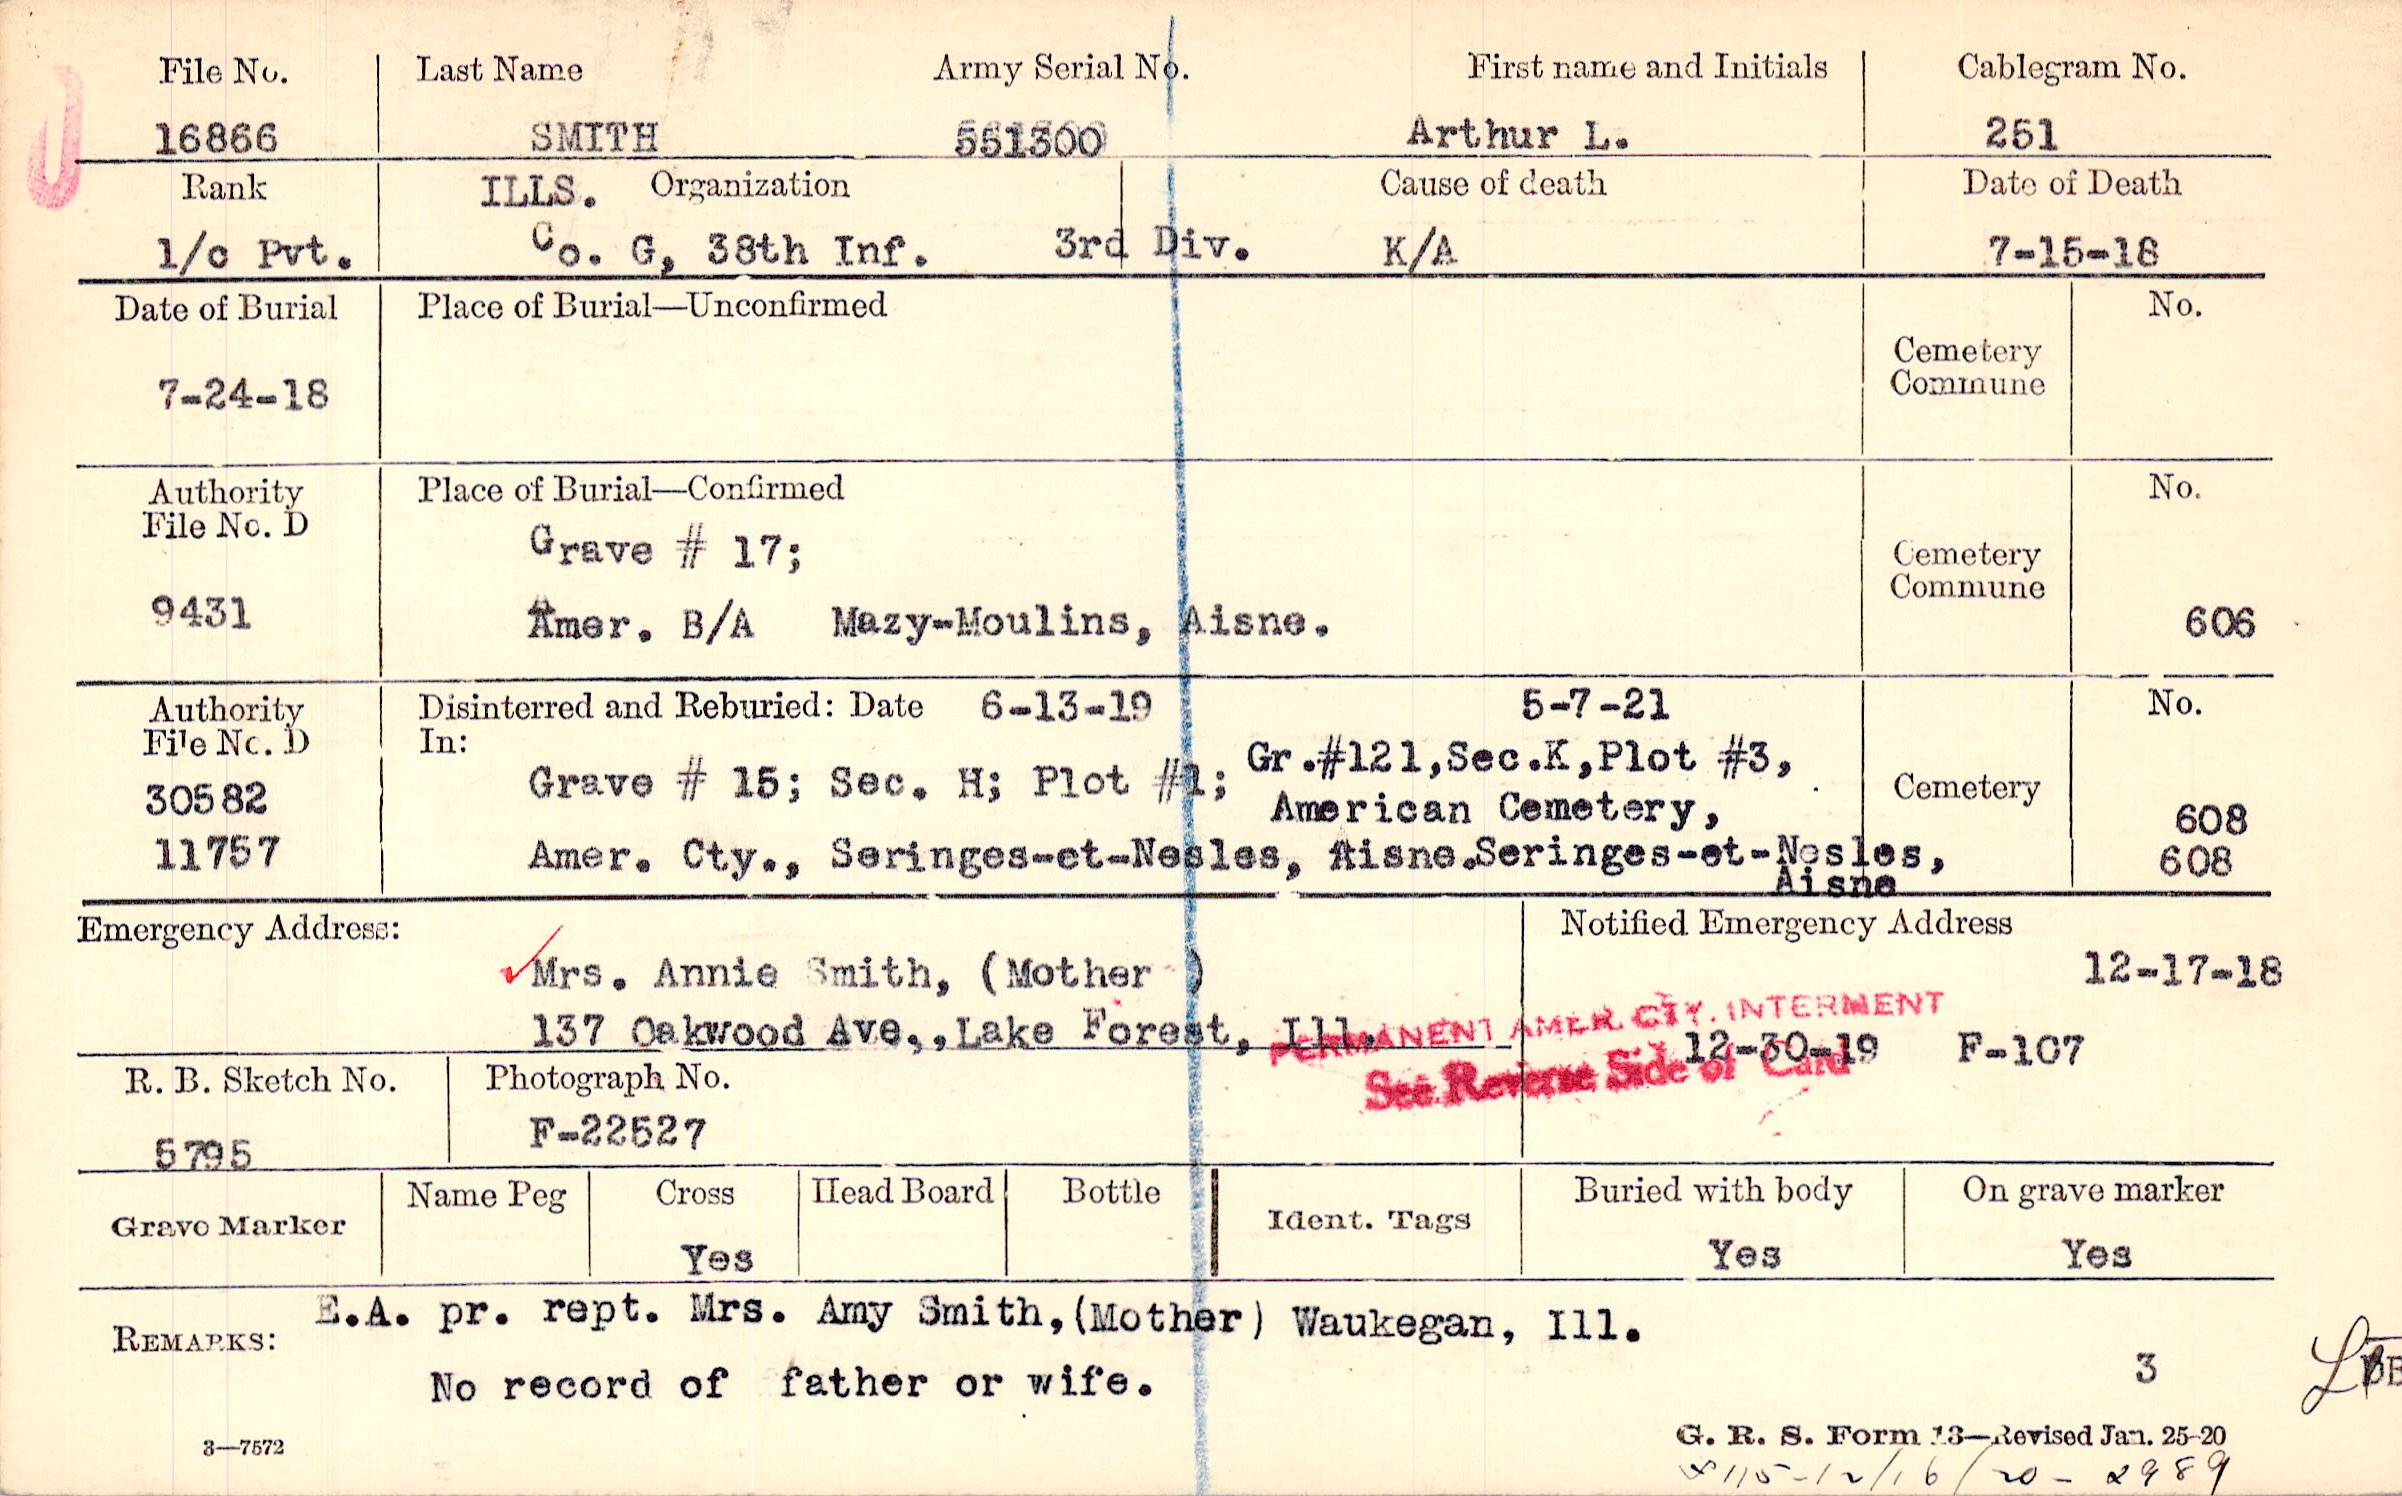 File No. Last Name Army Serial No. First name and Initials Cablegram No.
16866 SMITH 551300 Arthur L. 251
Rank ILLS. Organization Cause of death Date of Death
1/c Pvt. Co. G, 38th Inf. 3rd Div. K/A 7-15-18
Date of Burial Place of Burial—Unconfirmed No.
Cemetery
Commune
7-24-18
Authority Place of Burial—Confirmed No.
File No. D
Grave # 17;
Cemetery
Commune
9431 Amer. B/A Mazy-Moulins, Aisne. 606
Authority Disinterred and Reburied: Date 6-13-19 5-7-21 No.
File No. D In:
Gr.#121,Sec.K,Plot #3,
30582 Grave # 15; Sec. H; Plot #1; Cemetery
American Cemetery, 608
11757 Amer. Cty., Seringes-et-Nesles, Aisne. Seringes-et-Nesles, 608
Aisne
Emergency Address: Notified Emergency Address
Mrs. Annie Smith, (Mother ) 12-17-18
137 Oakwood Ave,,Lake Forest, Ill.
PERMANENT AMER. CTY. INTERMENT
12-30-19 F-107
See Reverse Side of Card
R. B. Sketch No. Photograph No.
5795 F-22527
Grave Marker Name Peg Cross Head Board Bottle Ident. Tags Buried with body On grave marker
Yes Yes Yes
REMARKS: E.A. pr. rept. Mrs. Amy Smith,(Mother) Waukegan, Ill.
No record of father or wife. 3
3—7572 G. R. S. Form 13—Revised Jan. 25-20